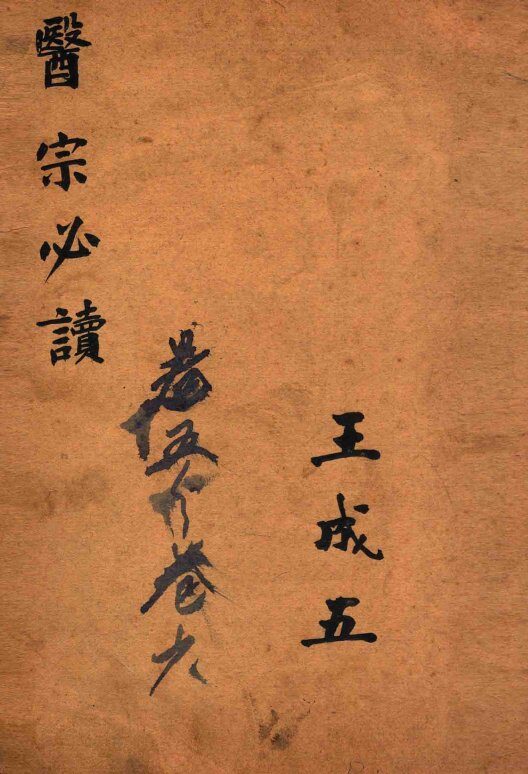 王成五
卷五 卷六
醫宗必讀